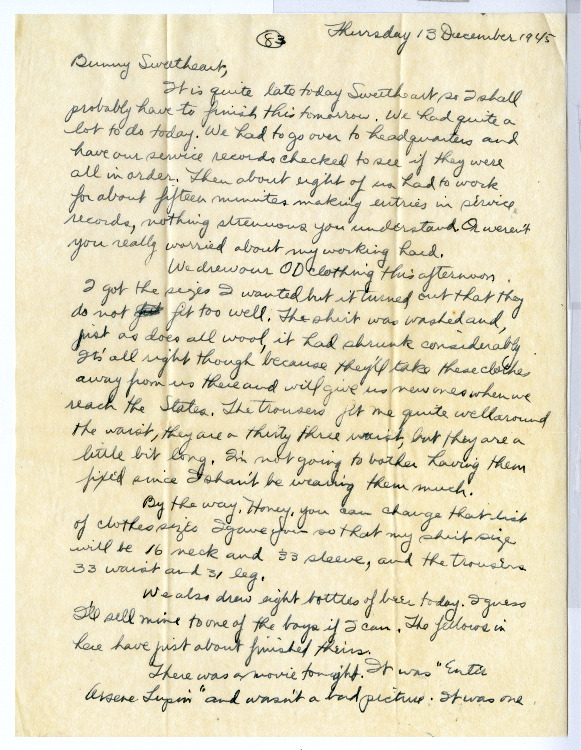 83
Thursday 13 December 1945
Bunny Sweetheart,
It is quite late today Sweetheart so I shall
probably have to finish this tomorrow. We had quite a
lot to do today. We had to go over to headquarters and
have our service records checked to see if they were
all in order. Then about eight of us had to work
for about fifteen minutes making entries in service
records, nothing strenuous you understand. Or weren't
you really worried about my working hard.
We drew our OD clothing this afternoon.
I got the sizes I wanted but it turned out that they
do not fit too well. The shirt was washed and,
just as does all wool, it had shrunk considerably.
It's all right though because they'll take these clothes
away from us there and will give us new ones when we
reach the States. The trousers fit me quite well around
the waist, they are a thirty three waist, but they are a
little bit long. I'm not going to bother having them
fixed since I shan't be wearing them much.
By the way, Honey, you can change that list
of clothes sizes I gave you so that my shirt size
will be 16 neck and 33 sleeve, and the trousers
33 waist and 31 leg.
We also drew eight bottles of beer today. I guess
I'll sell mine to one of the boys if I can. The fellows in
here have just about finished theirs.
There was a movie tonight. It was "Enter
Arsene Lupin" and wasn't a bad picture. It was one